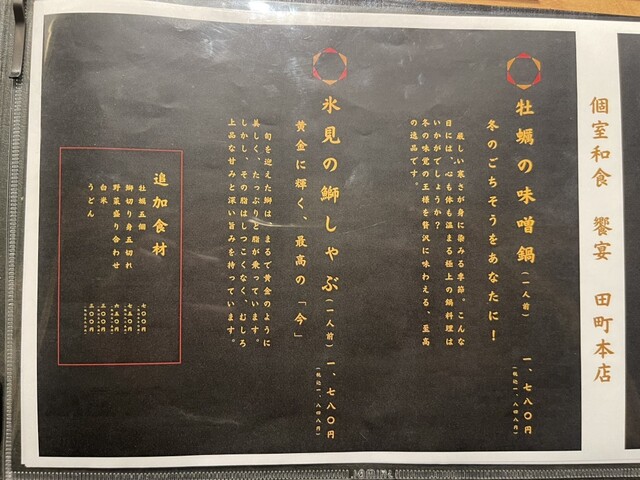 個室和食 饗宴 田町本店
牡蠣の味噌鍋(一人前) 一、七八〇円
(税込一、八四八円)
冬のごちそうをあなたに!
厳しい寒さが身に染みる季節。こんな
日には、心も体も温まる極上の鍋料理は
いかがでしょうか？
冬の味覚の王様を贅沢に味わえる、至高
の逸品です。
氷見の鰤しゃぶ(一人前) 一、七八〇円
(税込一、八四八円)
黄金に輝く、最高の「今」
旬を迎えた鰤は、まるで黄金のように
美しく、たっぷりと脂が乗っています。
しかし、その脂はしつこくなく、むしろ
上品な甘みと深い旨みを持っています。
追加食材
牡蠣五個 七〇〇円
鰤切り身五切れ 七五〇円
野菜盛り合わせ 六五〇円
白米 三〇〇円
うどん 三〇〇円